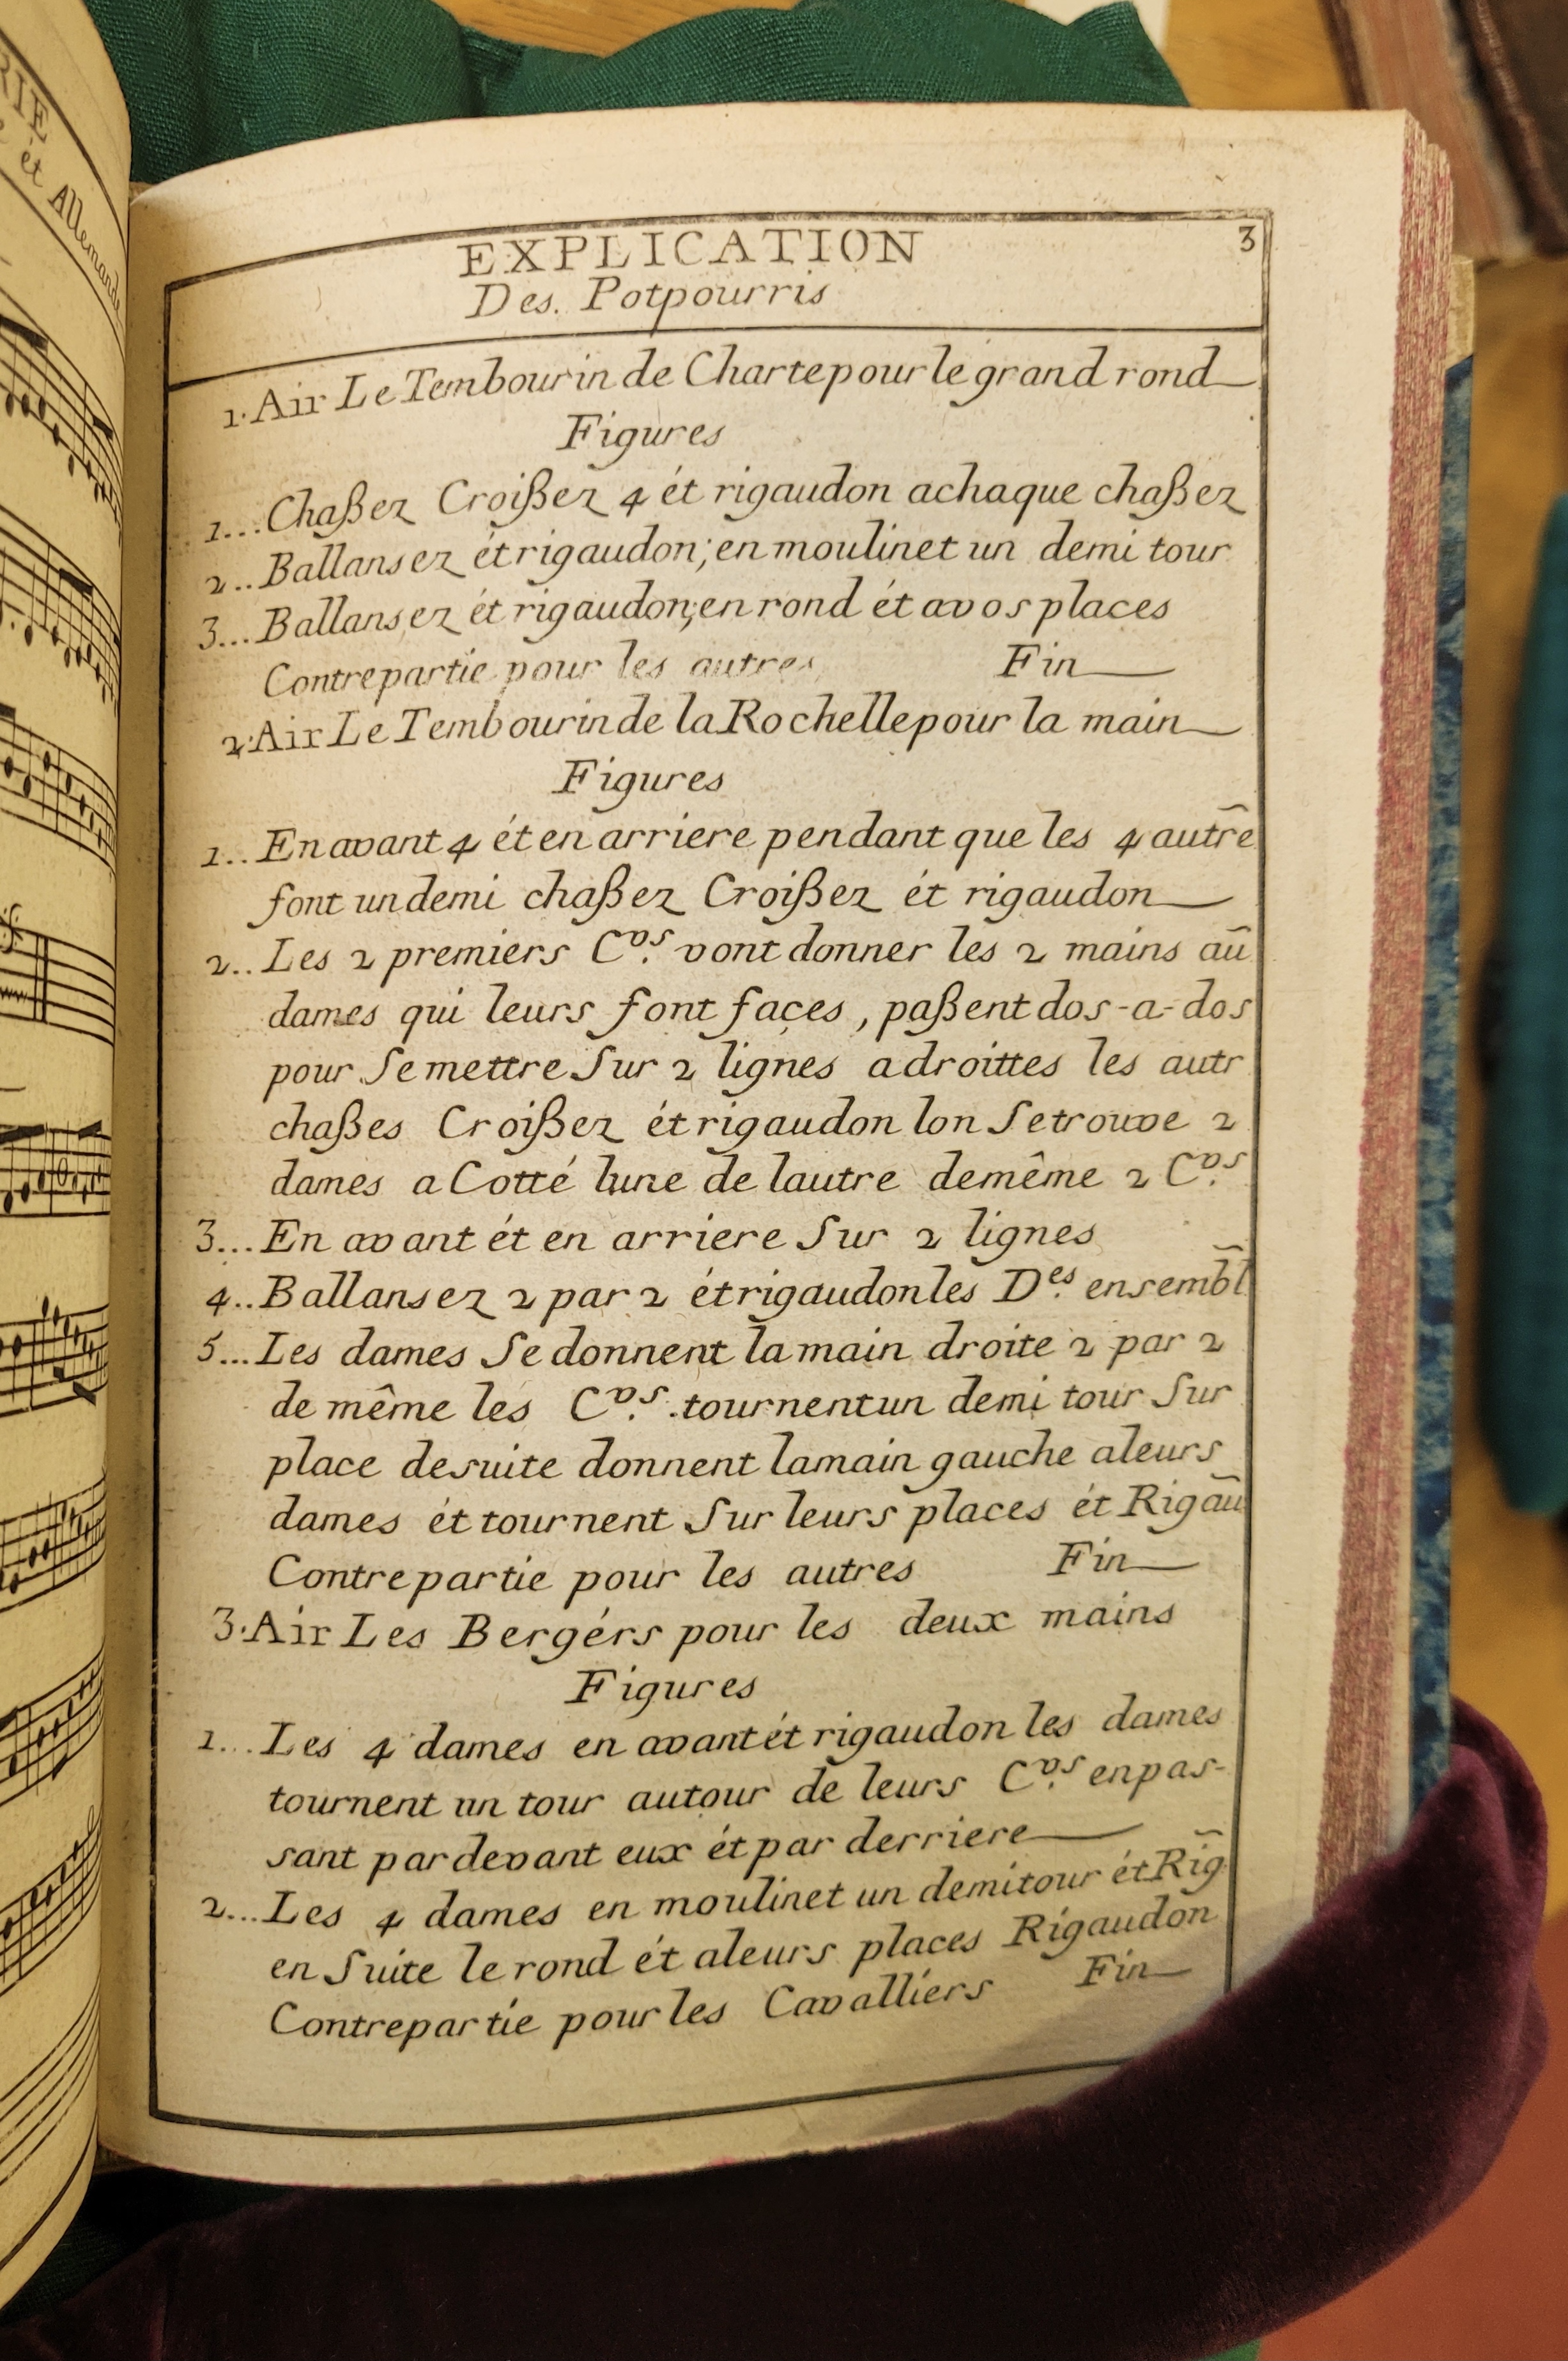 RIE
et Allemande
EXPLICATION
3
Des. Potpourris
1. Air Le Tembourin de Charte pour le grand rond
Figures
1... Chaßez Croißez 4 ét rigaudon a chaque chaßez
2.. Ballansez ét rigaudon; en moulinet un demi tour
3... Ballansez ét rigaudon; en rond ét a vos places
Contrepartie pour les autres Fin
2. Air Le Tembourin de la Rochelle pour la main
Figures
1.. En avant 4 ét en arriere pendant que les 4 autr̃e
font un demi chaßez Croißez ét rigaudon
2.. Les 2 premiers C.vs vont donner les 2 mains au̅
dames qui leurs font façes, paßent dos-a-dos
pour Se mettre Sur 2 lignes a droittes les autr
chaßes Croißez ét rigaudon lon Se trouve 2
dames a Cotté lune de lautre de même 2 C.vs
3... En avant ét en arriere Sur 2 lignes
4.. Ballansez 2 par 2 ét rigaudon les D.es ensemb̃l
5... Les dames Se donnent la main droite 2 par 2
de même les C.vs tournent un demi tour Sur
place de suite donnent la main gauche a leurs
dames ét tournent Sur leurs places ét Rigau̅
Contrepartie pour les autres Fin
3. Air Les Bergérs pour les deux mains
Figures
1... Les 4 dames en avant ét rigaudon les dames
tournent un tour autour de leurs C.vs en pas-
sant par devant eux ét par derriere
2... Les 4 dames en moulinet un demi tour ét Rig̃
en Suite le rond ét a leurs places Rigaudon
Contrepartie pour les Cavalliérs Fin